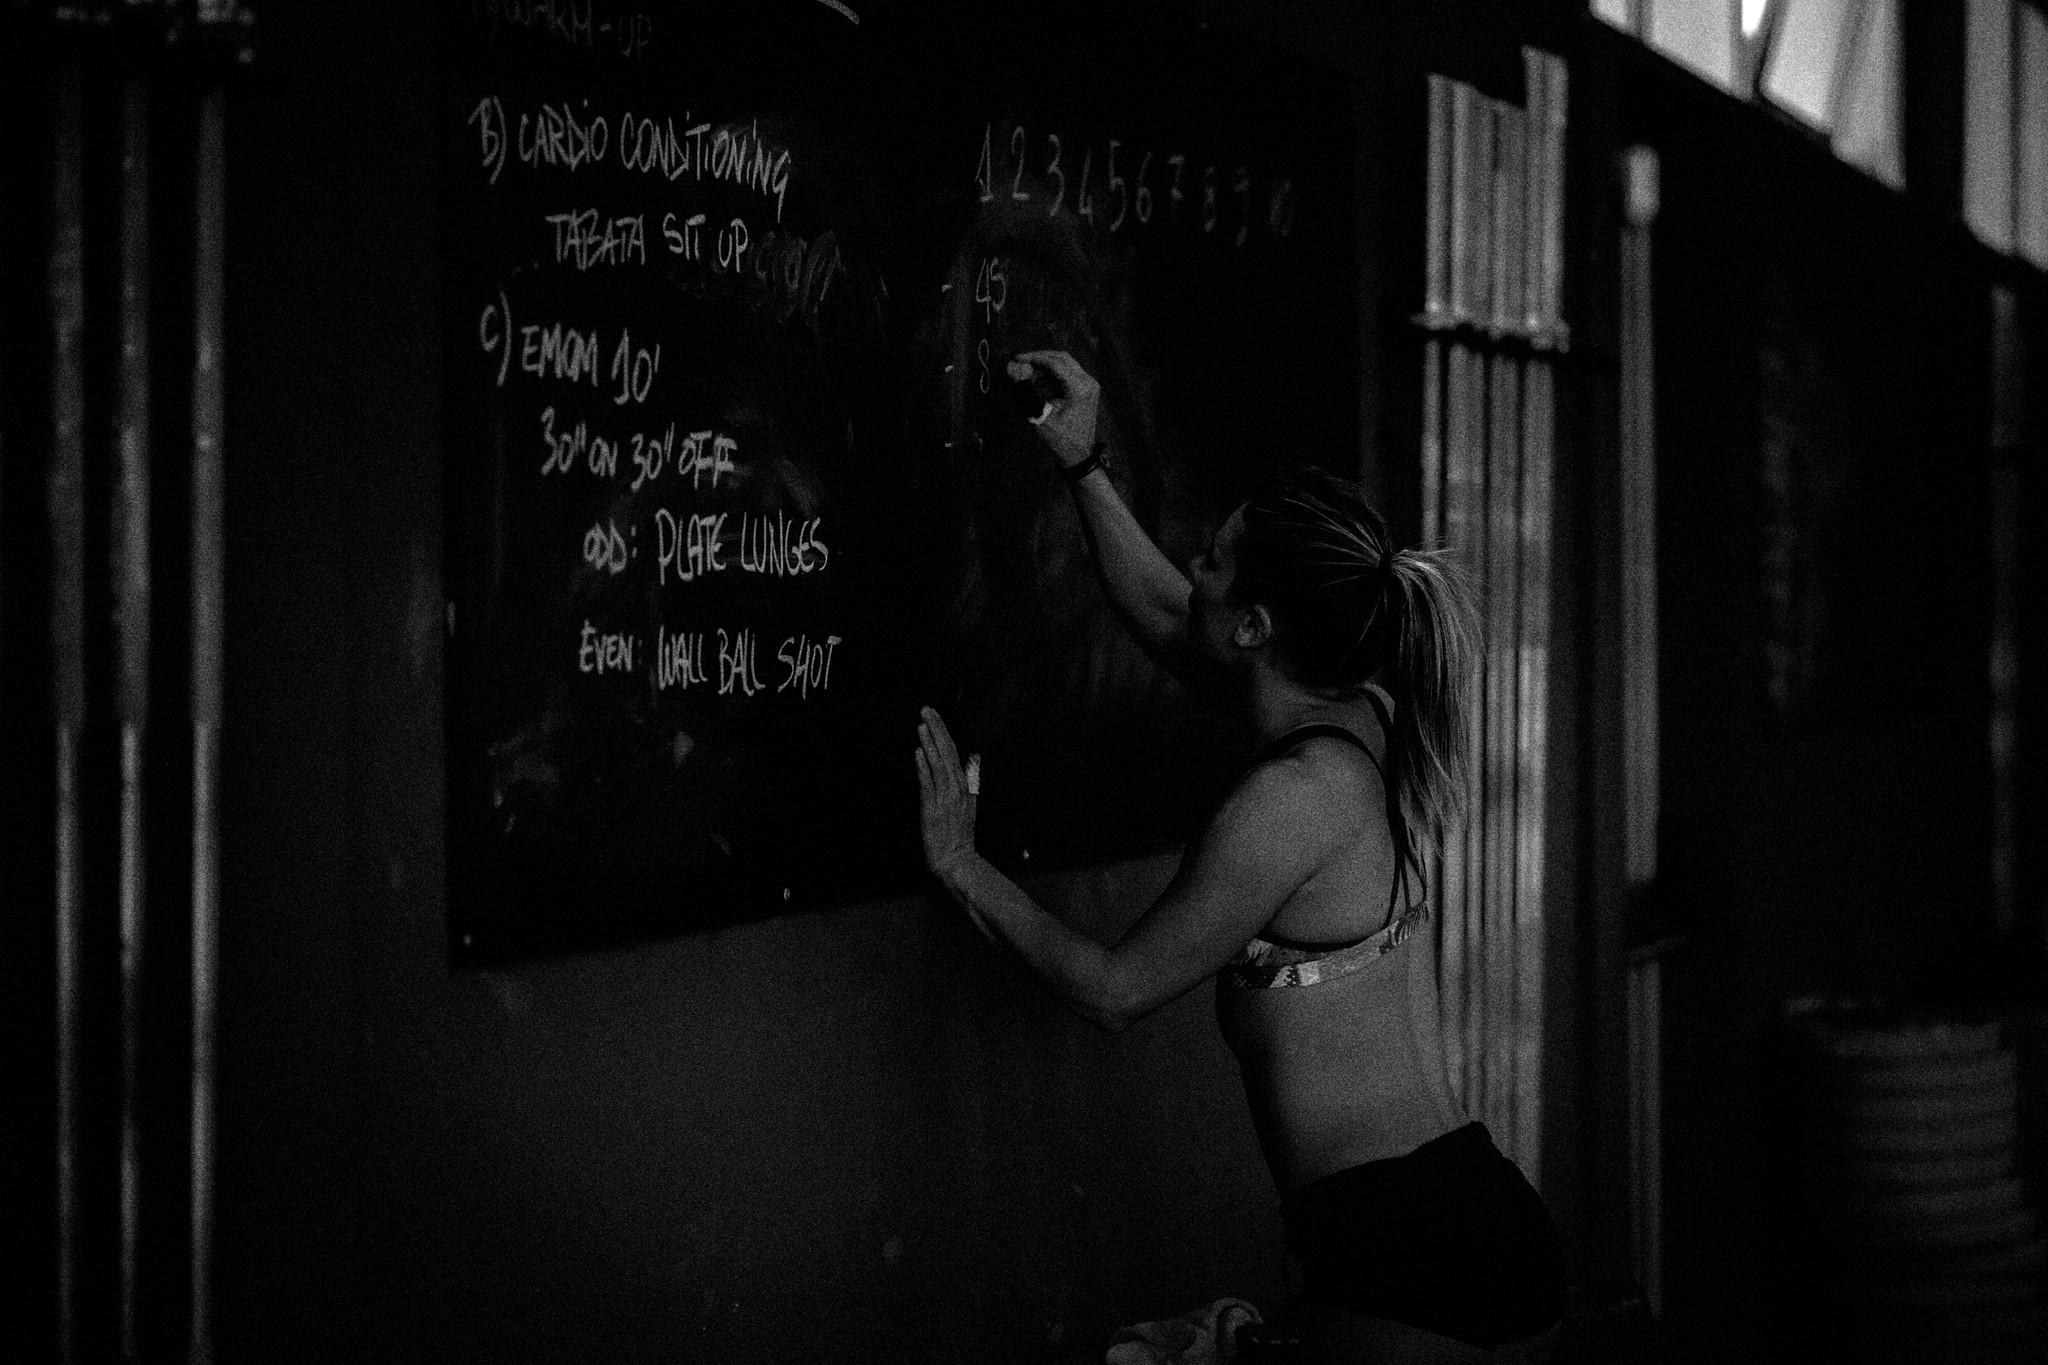 A) WARM-UP
B) CARDIO CONDITIONING
TABATA SIT UP
C) EMOM 10'
30" ON 30" OFF
ODD: PLATE LUNGES
EVEN: WALL BALL SHOT
1 2 3 4 5 6 7 8 9 10
- 45
- 8
-